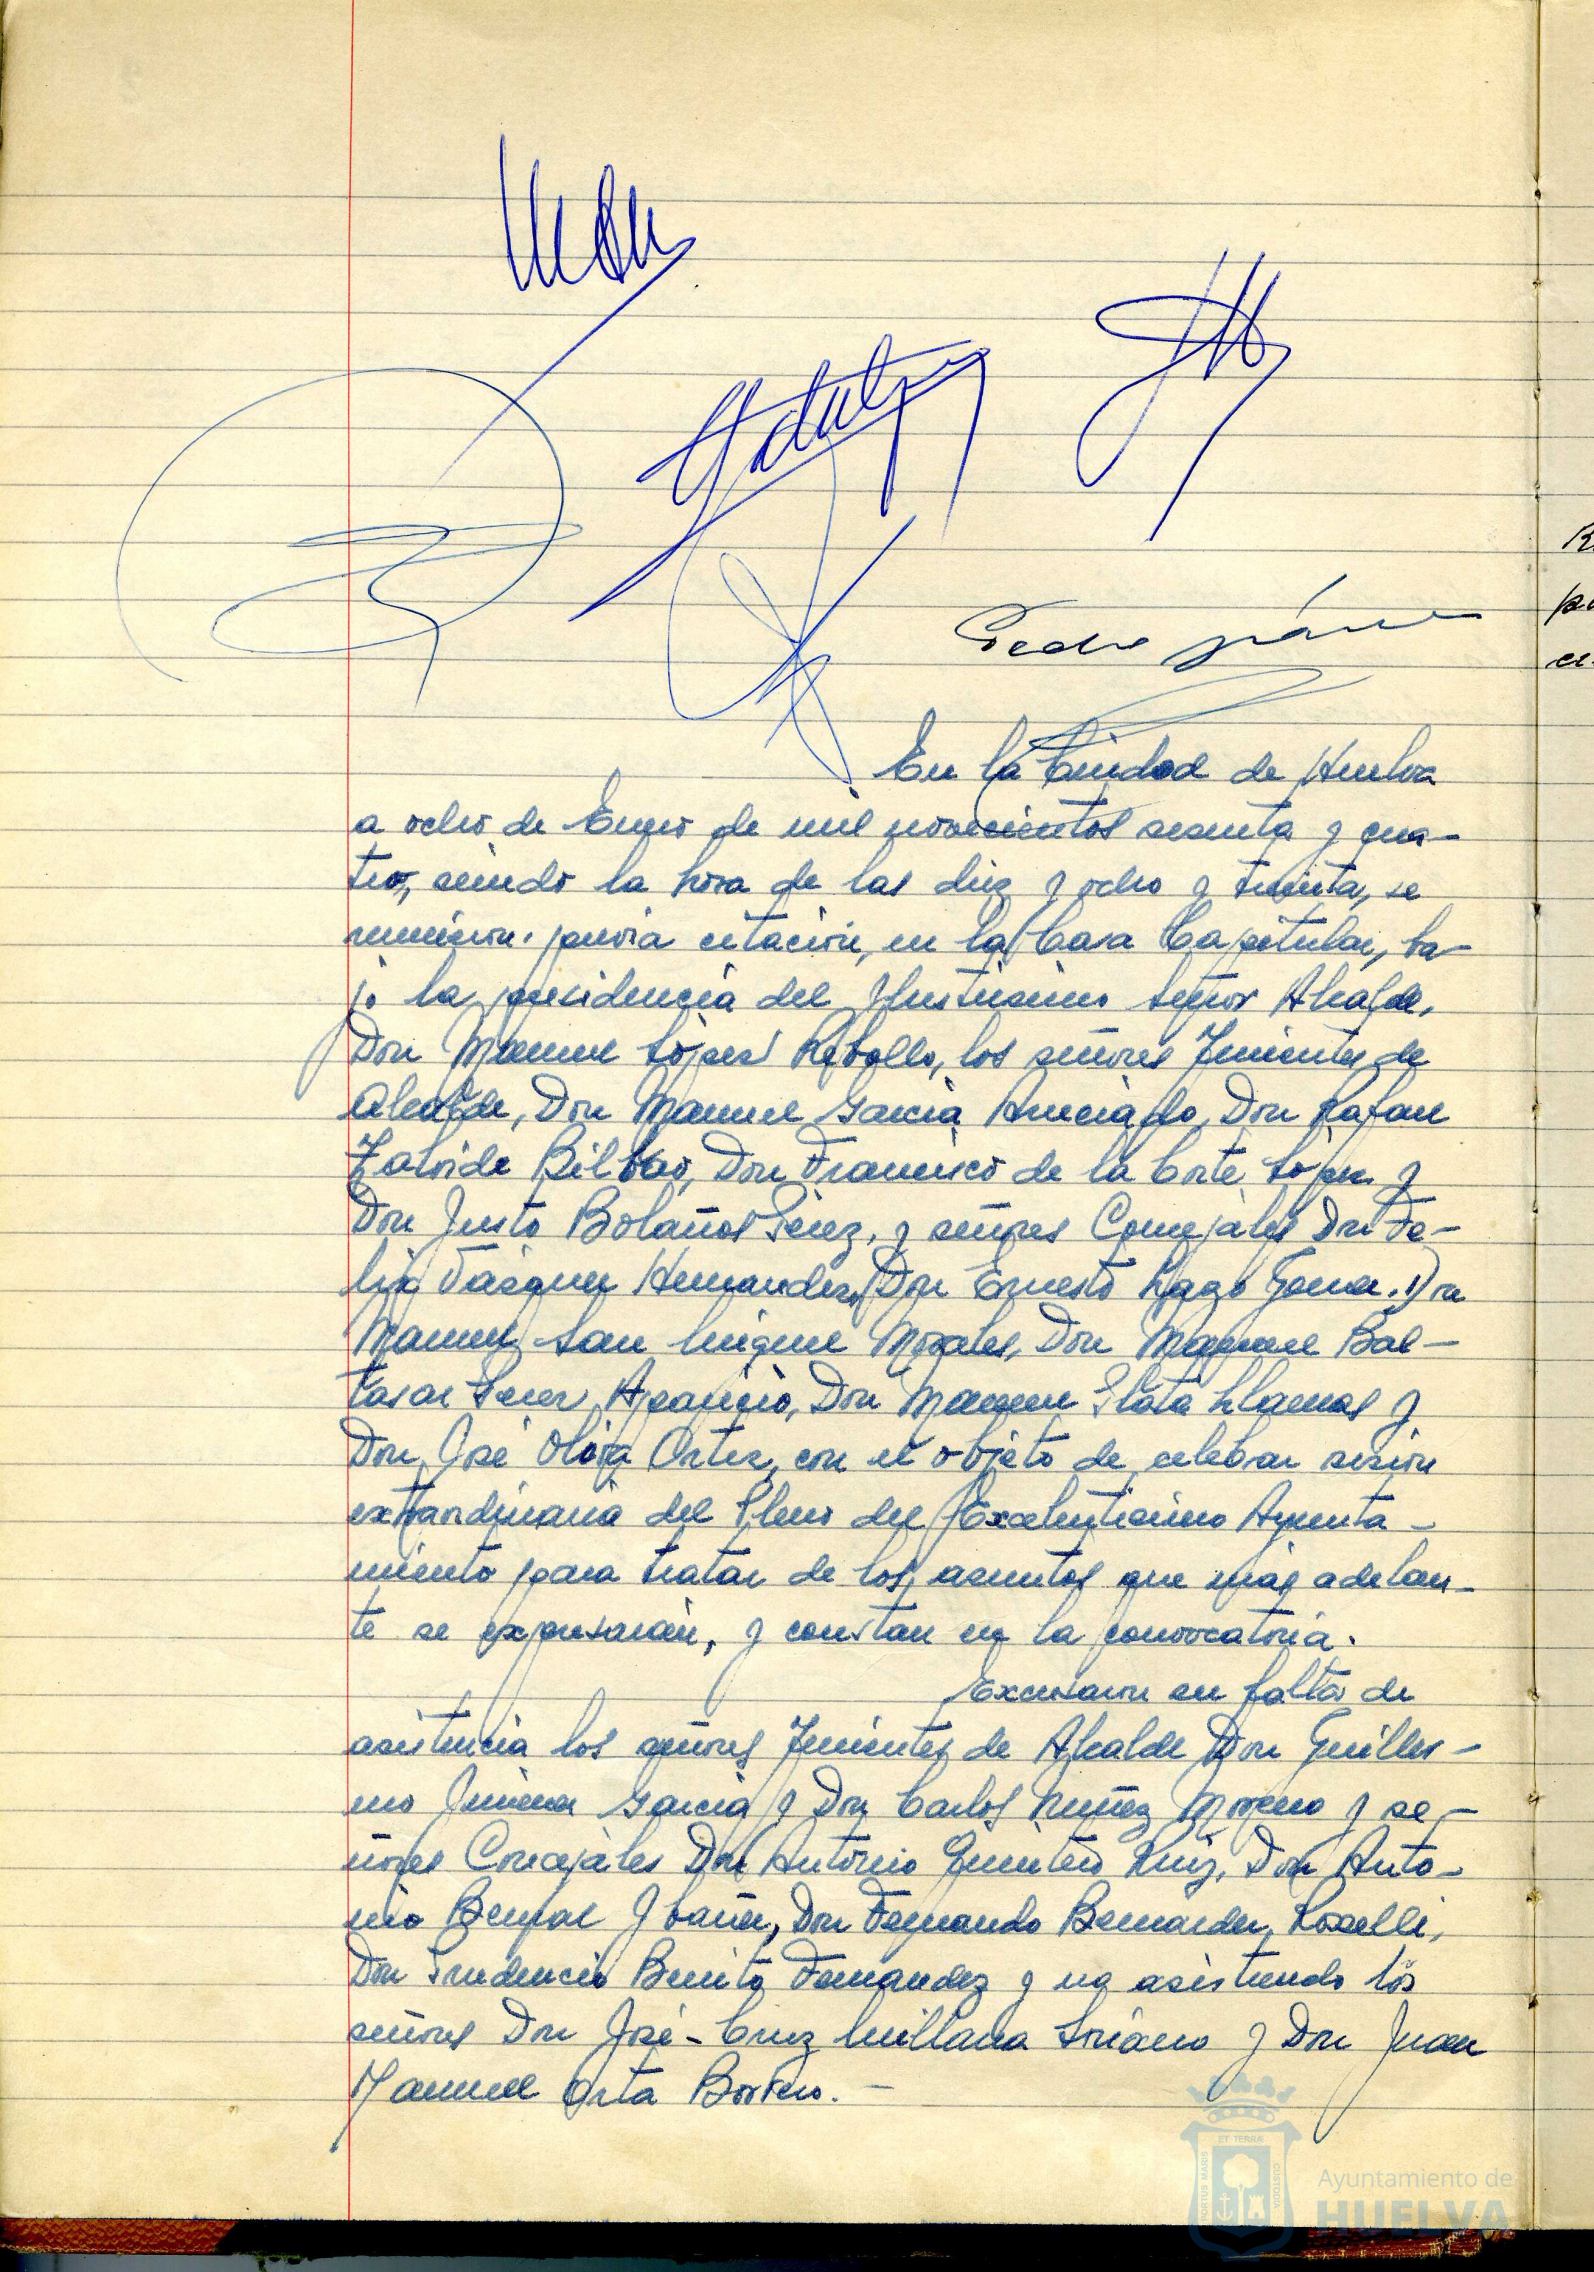 Pedro
En la Ciudad de Huelva
a ocho de Enero de mil novecientos sesenta y cua-
tro, siendo la hora de las diez y ocho y treinta, se
reunieron previa citación, en la Casa Capitular, ba-
jo la presidencia del Ilustrisimo señor Alcalde,
Don Manuel López Rebollo, los señores Tenientes de
Alcalde, Don Manuel Garcia Don Rafael
Zalvide Bilbao, Don Francisco de la Corte López y
Don Justo Bolaños Pérez, y señores Concejales Don Fe-
lix Vázquez Hernandez, Don Ernesto Lazo Don
Manuel San Miguel Morales, Don Manuel Bal-
tasar Perez Aparicio, Don Manuel Plata Llamas y
Don José Oliva Ortiz, con el objeto de celebrar sesión
extraordinaria del Pleno del Excelentisimo Ayunta-
miento para tratar de los asuntos que más adelan-
te se expresarán, y constan en la convocatoria.
Excusaron su falta de
asistencia los señores Tenientes de Alcalde Don Guiller-
mo Jimenez Garcia y Don Carlos Nuñez Moreno y se-
ñores Concejales Don Antonio Quintero Ruiz, Don Anto-
nio Bernal Ibañez, Don Fernando Bermudez Roselli,
Don Prudencio Benito Fernandez y no asistiendo los
señores Don José-Cruz Millana Soriano y Don Juan
Manuel Orta Borrero.-
ET TERRÆ
PORTUS MARIS
CUSTODIA
Ayuntamiento de
HUELVA